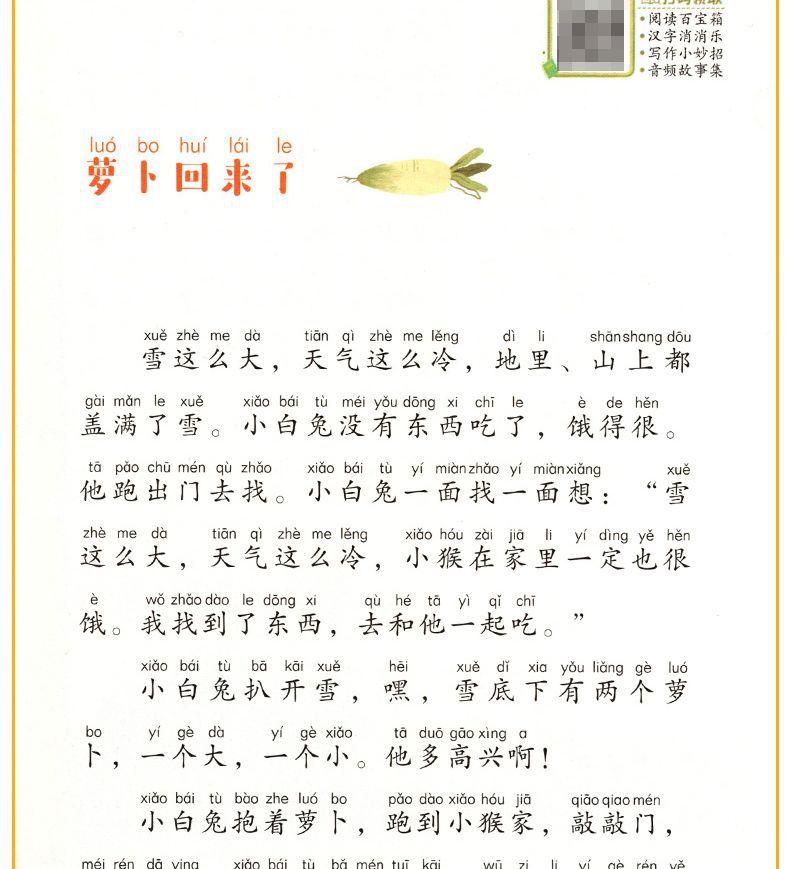 阅读百宝箱
汉字消消乐
写作小妙招
音频故事集
luó bo huí lái le
萝卜回来了
xuě zhè me dà tiān qì zhè me lěng dì li shān shang dōu
雪这么大，天气这么冷，地里、山上都
gài mǎn le xuě xiǎo bái tù méi yǒu dōng xi chī le è de hěn
盖满了雪。小白兔没有东西吃了，饿得很。
tā pǎo chū mén qù zhǎo xiǎo bái tù yí miàn zhǎo yí miàn xiǎng xuě
他跑出门去找。小白兔一面找一面想：“雪
zhè me dà tiān qì zhè me lěng xiǎo hóu zài jiā li yí dìng yě hěn
这么大，天气这么冷，小猴在家里一定也很
è wǒ zhǎo dào le dōng xi qù hé tā yì qǐ chī
饿。我找到了东西，去和他一起吃。”
xiǎo bái tù bā kāi xuě hēi xuě dǐ xia yǒu liǎng gè luó
小白兔扒开雪，嘿，雪底下有两个萝
bo yí gè dà yí gè xiǎo tā duō gāo xìng a
卜，一个大，一个小。他多高兴啊！
xiǎo bái tù bào zhe luó bo pǎo dào xiǎo hóu jiā qiāo qiao mén
小白兔抱着萝卜，跑到小猴家，敲敲门，
méi rén dā ying xiǎo bái tù bǎ mén tuī kāi wū zi li yí gè rén yě